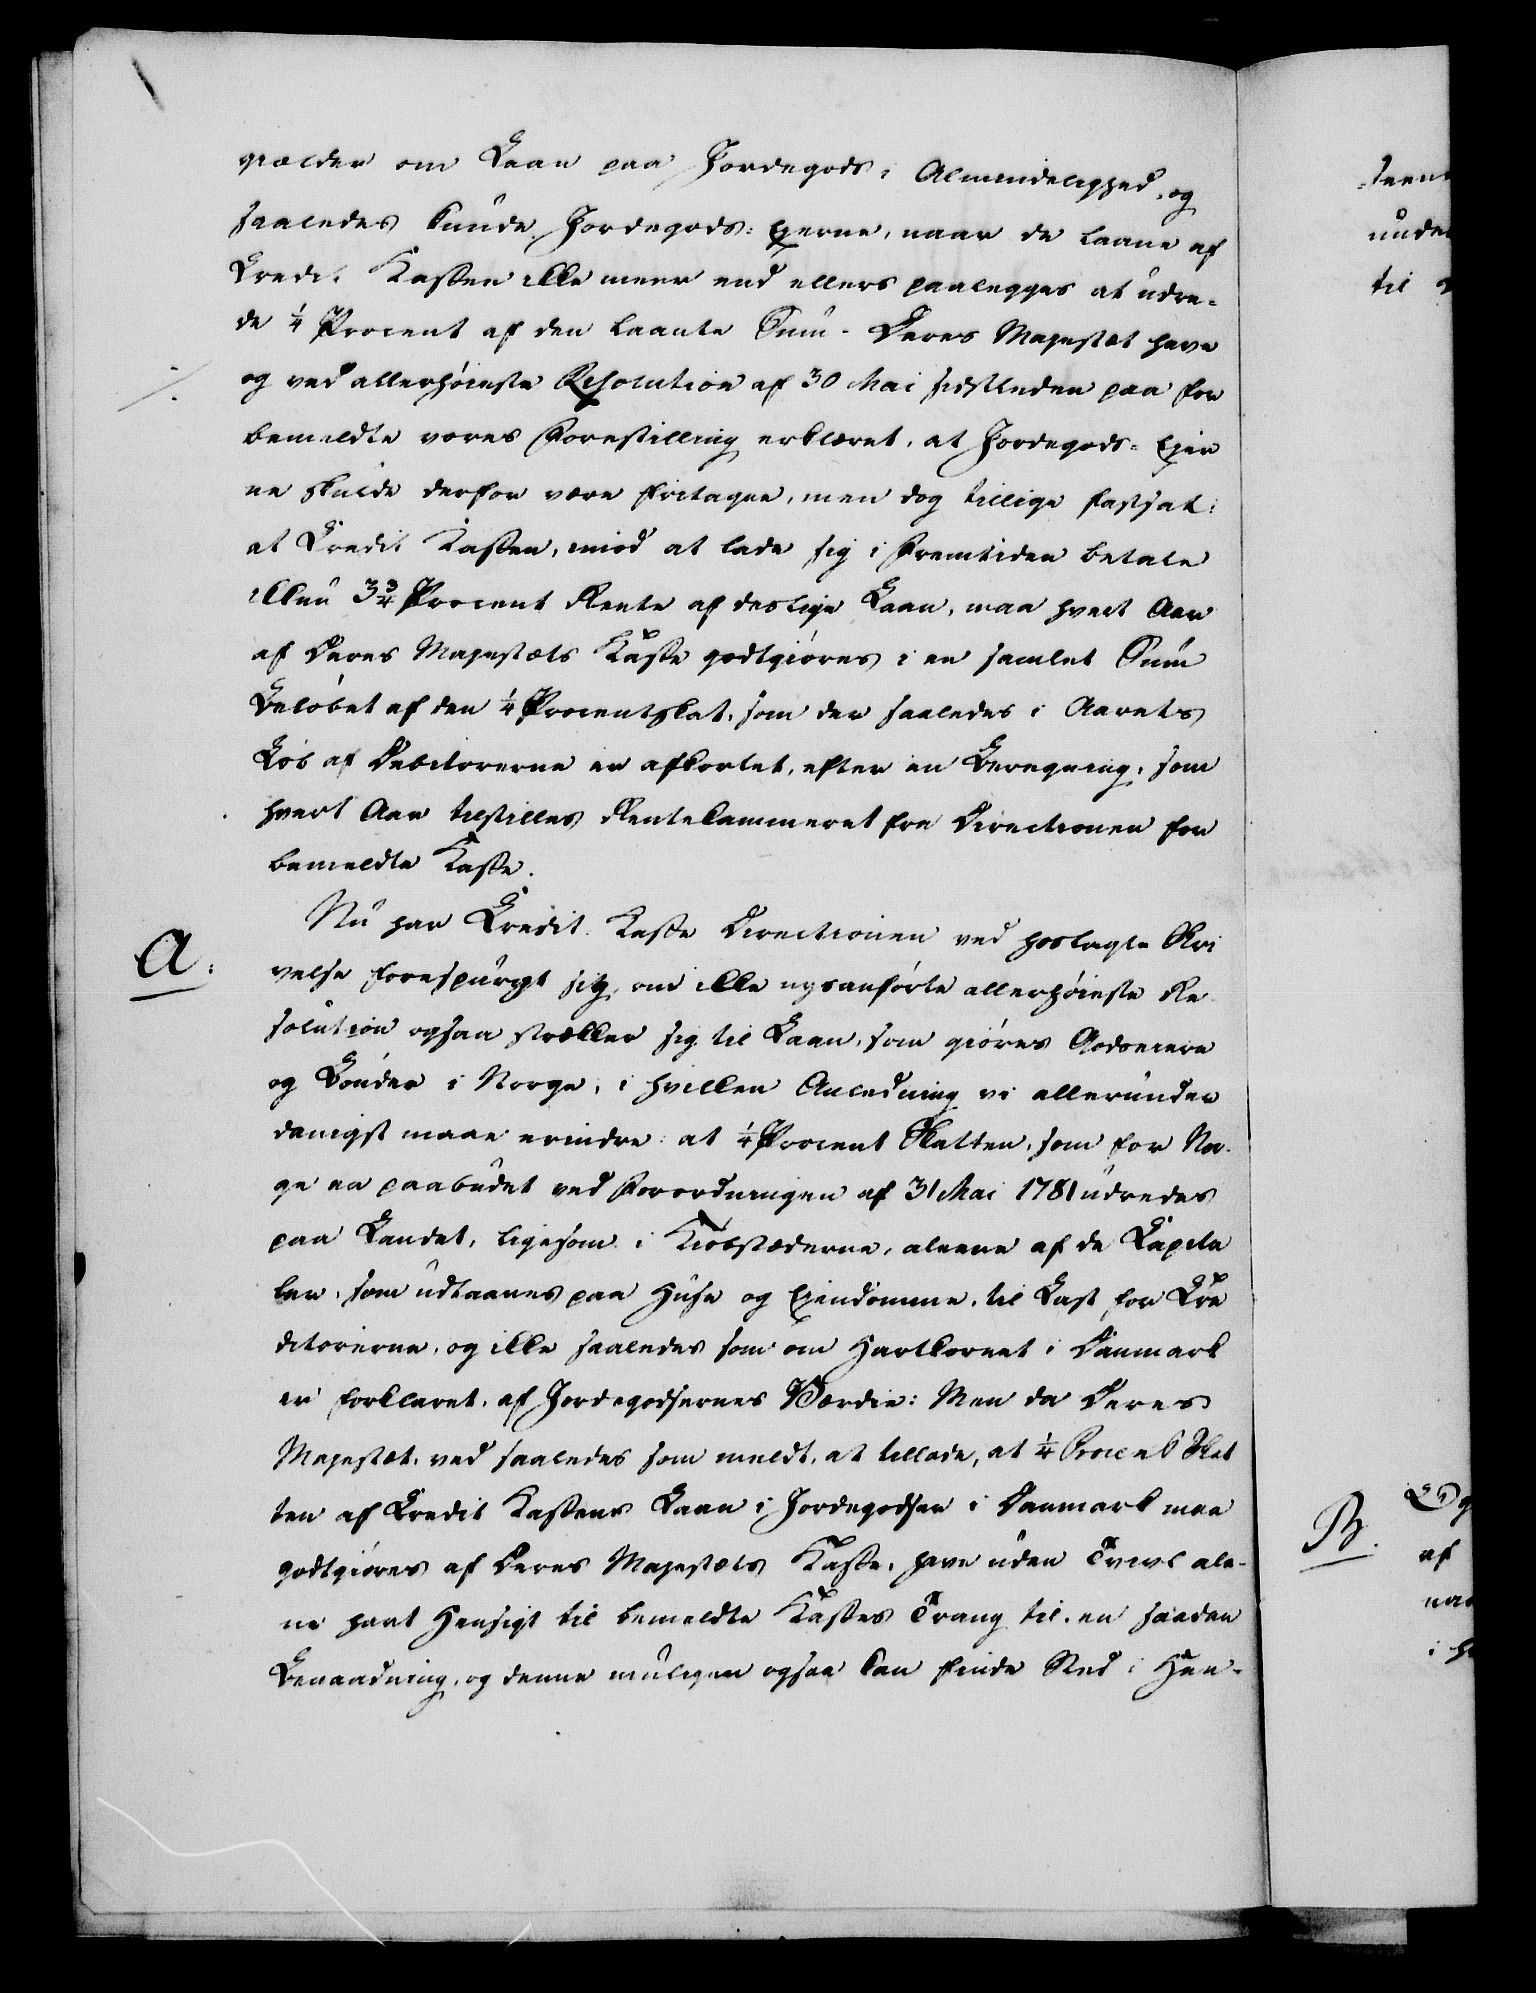 gielder om Laan paa Jordegods i Almindelighed, og
saaledes kunde Jordegods-Ejerne, naar de laane af
Credit Kassen ikke meer end ellers paalegges at udre-
de ¼ Procent af den laante Sum. Deres Majestæt have
og ved allerhøieste Resolution af 30 Mai sidstleden paa for
bemeldte vores Forestilling erklæret, at Jordegods-Ejer
ne skulde derfor være fritagne, men dog tillige fastsat:
at Credit Kassen, imod at lade sig i Fremtiden betale
ikkun 3¾ Procent Rente af deslige Laan, maa hvert Aar
af Deres Majestæts Kasse godtgiøres i en samlet Sum
Beløbet af den ¼ Procentskat, som der saaledes i Aarets
Løb af Debitorerne er afkortet, efter en Beregning, som
hvert Aar tilstilles Rentekammeret fra Directionen for
bemeldte Kasse.
Nu har Credit-Kasse Directionen ved hoslagte Skri
A:
velse forespurgt sig, om ikke nysanførte allerhøieste Re
solution ogsaa strækker sig til Laan, som giøres Godseiere
og Bønder i Norge, i hvilken Anledning vi allerunder
danigst maae erindre: at ¼ Procent Skatten, som for Nor
ge er paabudet ved Forordningen af 31 Mai 1781 udredes
paa Landet, ligesom i Kiøbstæderne, alene af de Capita
ler, som udlaanes paa Huse og Ejendomme, til Last for Cre
ditorerne, og ikke saaledes som om Hartkornet i Danmark
er forklaret, af Jordegodsernes Værdie: Men da Deres
Majestæt, ved saaledes som meldt, at tillade, at ¼ Procent Skat
ten af Credit Kassens Laan i Jordegodser i Danmark maa
godtgiøres af Deres Majestæts Kasse, have uden Tvivl ale-
ne havt Hensigt til bemeldte Kasses Trang til en saadan
Benaadning, og denne muligen ogsaa kan finde Sted i Hen-
B.